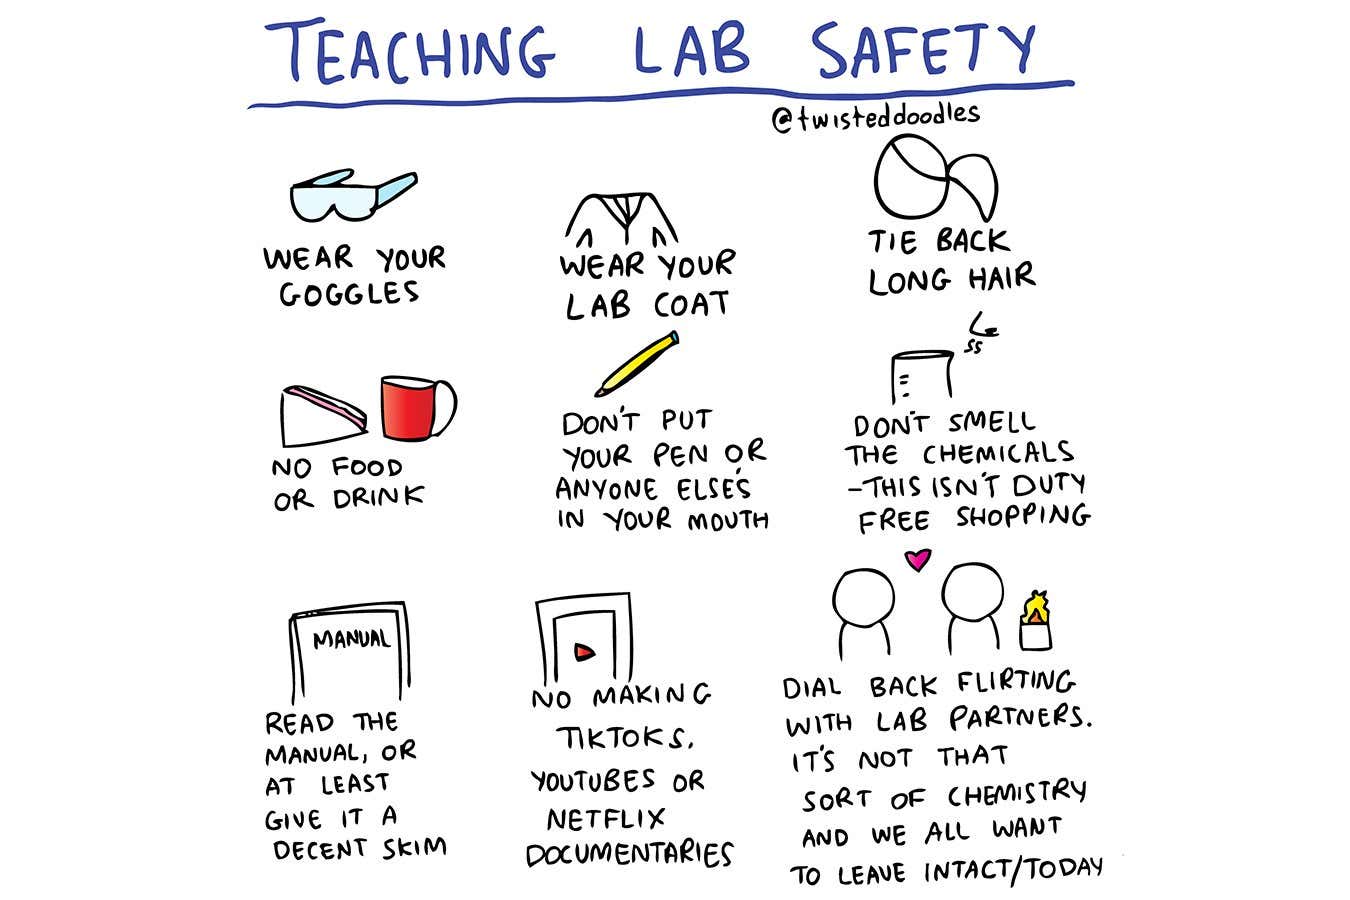 TEACHING LAB SAFETY
@twisteddoodles
WEAR YOUR
GOGGLES
WEAR YOUR
LAB COAT
TIE BACK
LONG HAIR
NO FOOD
OR DRINK
DON'T PUT
YOUR PEN OR
ANYONE ELSE'S
IN YOUR MOUTH
DON'T SMELL
THE CHEMICALS
-THIS ISN'T DUTY
FREE SHOPPING
MANUAL
READ THE
MANUAL, OR
AT LEAST
GIVE IT A
DECENT SKIM
NO MAKING
TIKTOKS,
YOUTUBES OR
NETFLIX
DOCUMENTARIES
DIAL BACK FLIRTING
WITH LAB PARTNERS.
IT'S NOT THAT
SORT OF CHEMISTRY
AND WE ALL WANT
TO LEAVE INTACT/TODAY